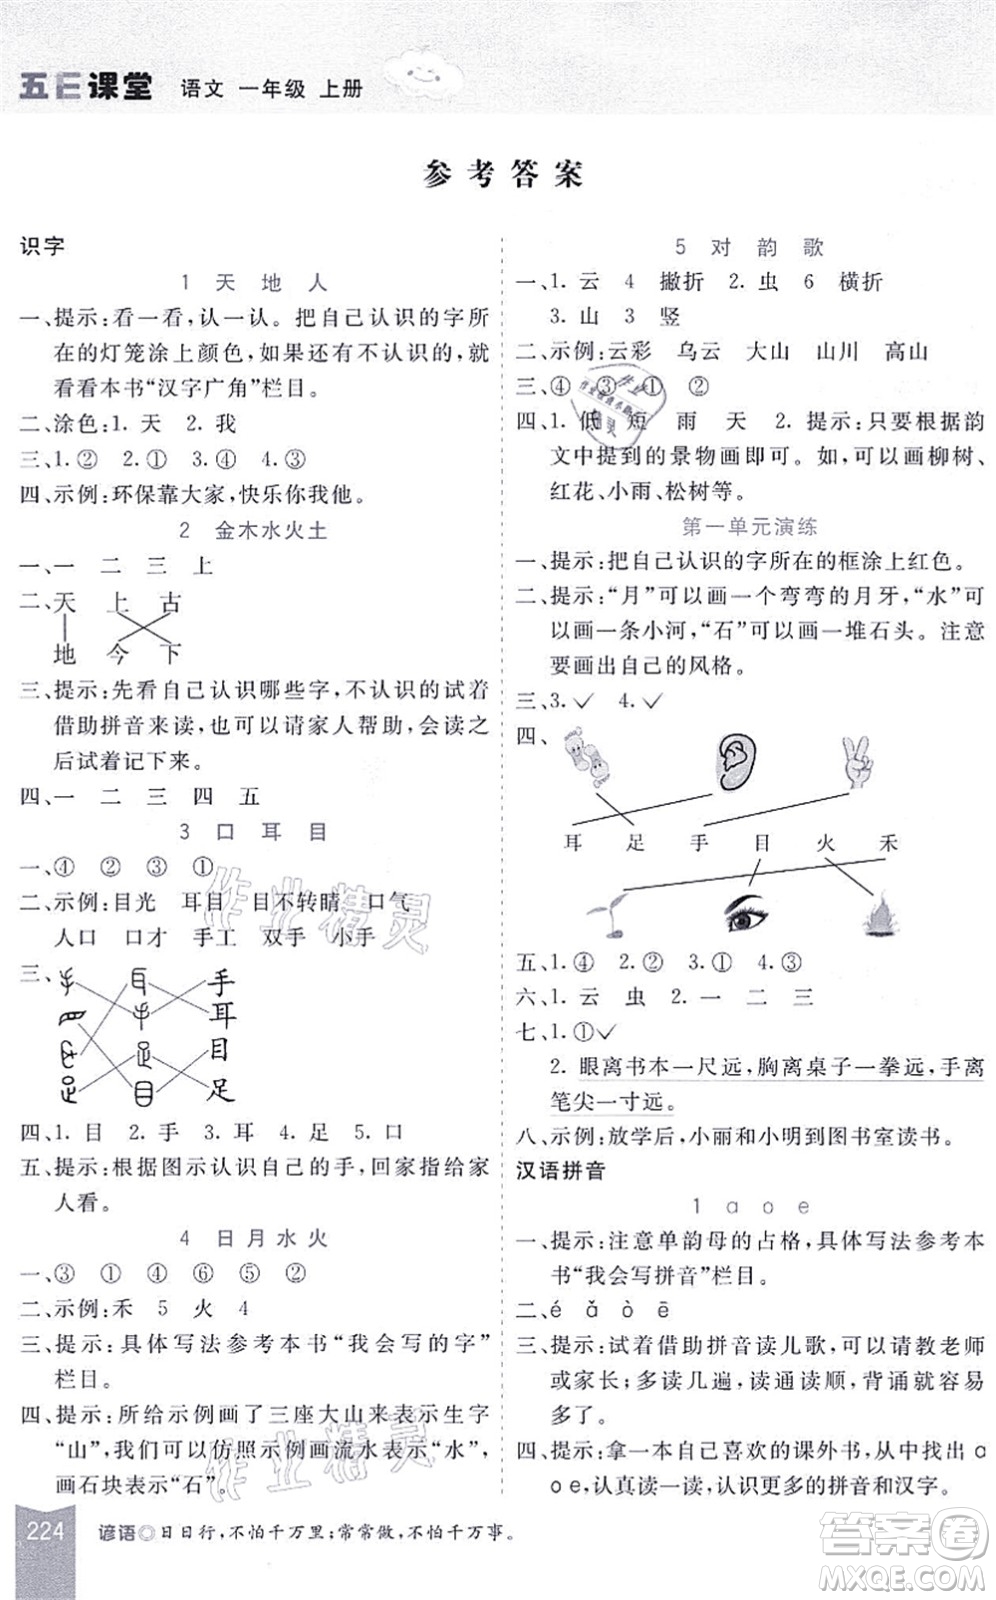 五E课堂 语文 一年级 上册
参考答案
识字
1 天 地 人
一、提示:看一看,认一认。把自己认识的字所
在的灯笼涂上颜色,如果还有不认识的,就
看看本书“汉字广角”栏目。
二、涂色:1. 天 2. 我
三、1.② 2.① 3.④ 4.③
四、示例:环保靠大家,快乐你我他。
2 金木水火土
一、一 二 三 上
二、天 上 古
地 今 下
三、提示:先看自己认识哪些字,不认识的试着
借助拼音来读,也可以请家人帮助,会读之
后试着记下来。
四、一 二 三 四 五
3 口 耳 目
一、④ ② ③ ①
二、示例:目光 耳目 目不转睛 口气
人口 口才 手工 双手 小手
三、
手
耳
目
足
四、1. 目 2. 手 3. 耳 4. 足 5. 口
五、提示:根据图示认识自己的手,回家指给家
人看。
4 日月水火
一、③ ① ④ ⑥ ⑤ ②
二、示例:禾 5 火 4
三、提示:具体写法参考本书“我会写的字”
栏目。
四、提示:所给示例画了三座大山来表示生字
“山”,我们可以仿照示例画流水表示“水”,
画石块表示“石”。
5 对 韵 歌
一、1. 云 4 撇折 2. 虫 6 横折
3. 山 3 竖
二、示例:云彩 乌云 大山 山川 高山
三、④ ③ ① ②
四、1. 低 短 雨 天 2. 提示:只要根据韵
文中提到的景物画即可。如,可以画柳树、
红花、小雨、松树等。
第一单元演练
一、提示:把自己认识的字所在的框涂上红色。
二、提示:“月”可以画一个弯弯的月牙,“水”可
以画一条小河,“石”可以画一堆石头。注意
要画出自己的风格。
三、3.✓ 4.✓
四、
耳 足 手 目 火 禾
五、1.④ 2.② 3.① 4.③
六、1. 云 虫 2. 一 二 三
七、1.①✓
2. 眼离书本一尺远,胸离桌子一拳远,手离
笔尖一寸远。
八、示例:放学后,小丽和小明到图书室读书。
汉语拼音
1 ɑ o e
一、提示:注意单韵母的占格,具体写法参考本
书“我会写拼音”栏目。
二、é ǎ ò ē
三、提示:试着借助拼音读儿歌,可以请教老师
或家长;多读几遍,读通读顺,收获就会更
多了。
四、提示:拿一本自己喜欢的课外书,从中找出 ɑ
o e,认真读一读,认识更多的拼音和汉字。
224 谚语◎日日行,不怕千万里;常常做,不怕千万事。
作业精灵
作业精灵
答案圈
MXQE.COM